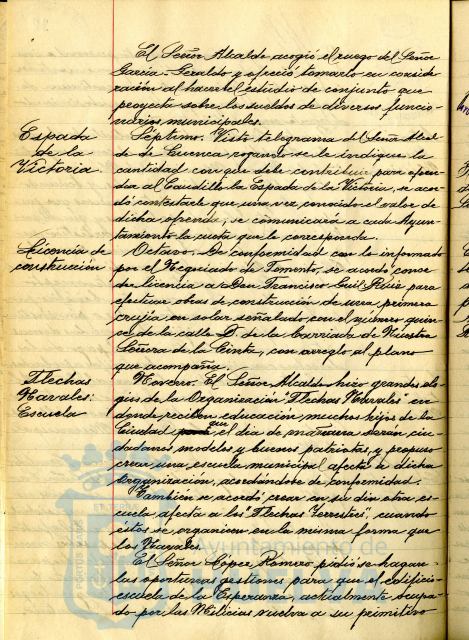 El Señor Alcalde acogió el ruego del Señor
García-Geraldo y ofreció tomarlo en conside-
ración al hacer el estudio de conjunto que
proyecta sobre los sueldos de diversos funcio-
narios municipales.
Espada
de la
Victoria.
Séptimo. Visto telegrama del Señor Alcal
de de Cuenca rogando se le indique la
cantidad con que debe contribuir para ofren-
dar al Caudillo la Espada de la Victoria, se acor-
dó contestarle que una vez conocido el valor de
dicha ofrenda, se comunicará a cada Ayun-
tamiento la cuota que le corresponda.
Licencia de
construcción
Octavo. De conformidad con lo informado
por el Negociado de Fomento, se acordó conce-
der licencia a Don Francisco Guil Ruiz para
efectuar obras de construcción de una primera
crujía en solar señalado con el número quin-
ce de la calle D. de la barriada de Nuestra
Señora de la Cinta, con arreglo al plano
que acompaña.
Flechas
Navales:
Escuela
Noveno. El Señor Alcalde hizo grandes elo-
gios de la Organización "Flechas Navales" en
donde reciben educación muchos hijos de la
Ciudad que el día de mañana serán ciu-
dadanos modelos y buenos patriotas, y propuso
crear una escuela municipal afecta a dicha
Organización, acordándose de conformidad.
También se acordó crear en su día otra es-
cuela afecta a los "Flechas Terrestres", cuando
éstos se organicen en la misma forma que
los Navales.
El Señor López Romero pidió se hagan
las oportunas gestiones para que el edificio
escuela de la Esperanza, actualmente ocupa-
do por las Milicias vuelva a su primitivo
Ayuntamiento de